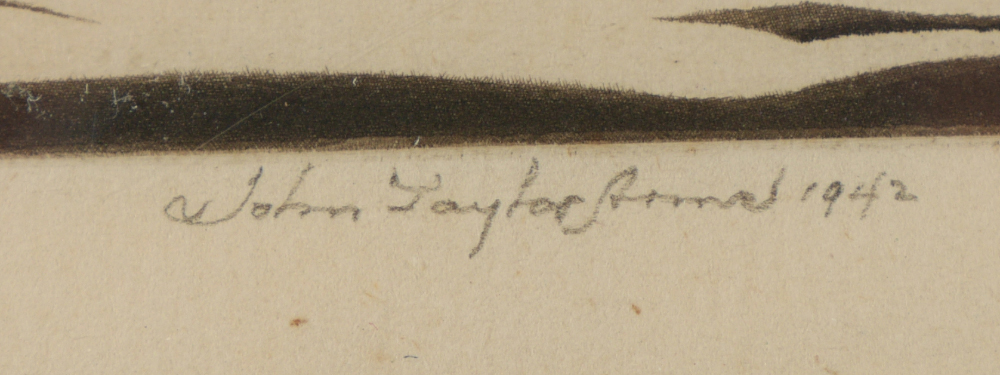 John Taylor Arms 1942